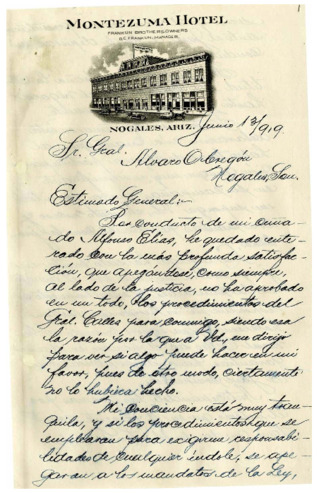 1
MONTEZUMA HOTEL
FRANKLIN BROTHERS, OWNERS
G.E. FRANKLIN, MANAGER.
NOGALES, ARIZ. Junio 13/919
Sr. Gral.
Alvaro Obregón
Nogales, Son.
Estimado General:-
Por conducto de mi cuña-
do Alfonso Elias, he quedado ente-
rado con la más profunda satisfac-
ción, que apegándose, como siempre,
al lado de la justicia, no ha aprobado
en un todo, los procedimientos del
Gral. Calles para conmigo, siendo esa
la razón por la que a Vd., me dirijo
para ver si algo puede hacer en mi
favor, pues de otro modo, ciertamente
no lo hubiera hecho.
Mi conciencia está muy tran-
quila, y si los procedimientos que se
emplearan para exigirme responsabi-
lidades de cualquier índole, se ape-
garan a los mandatos de la Ley,